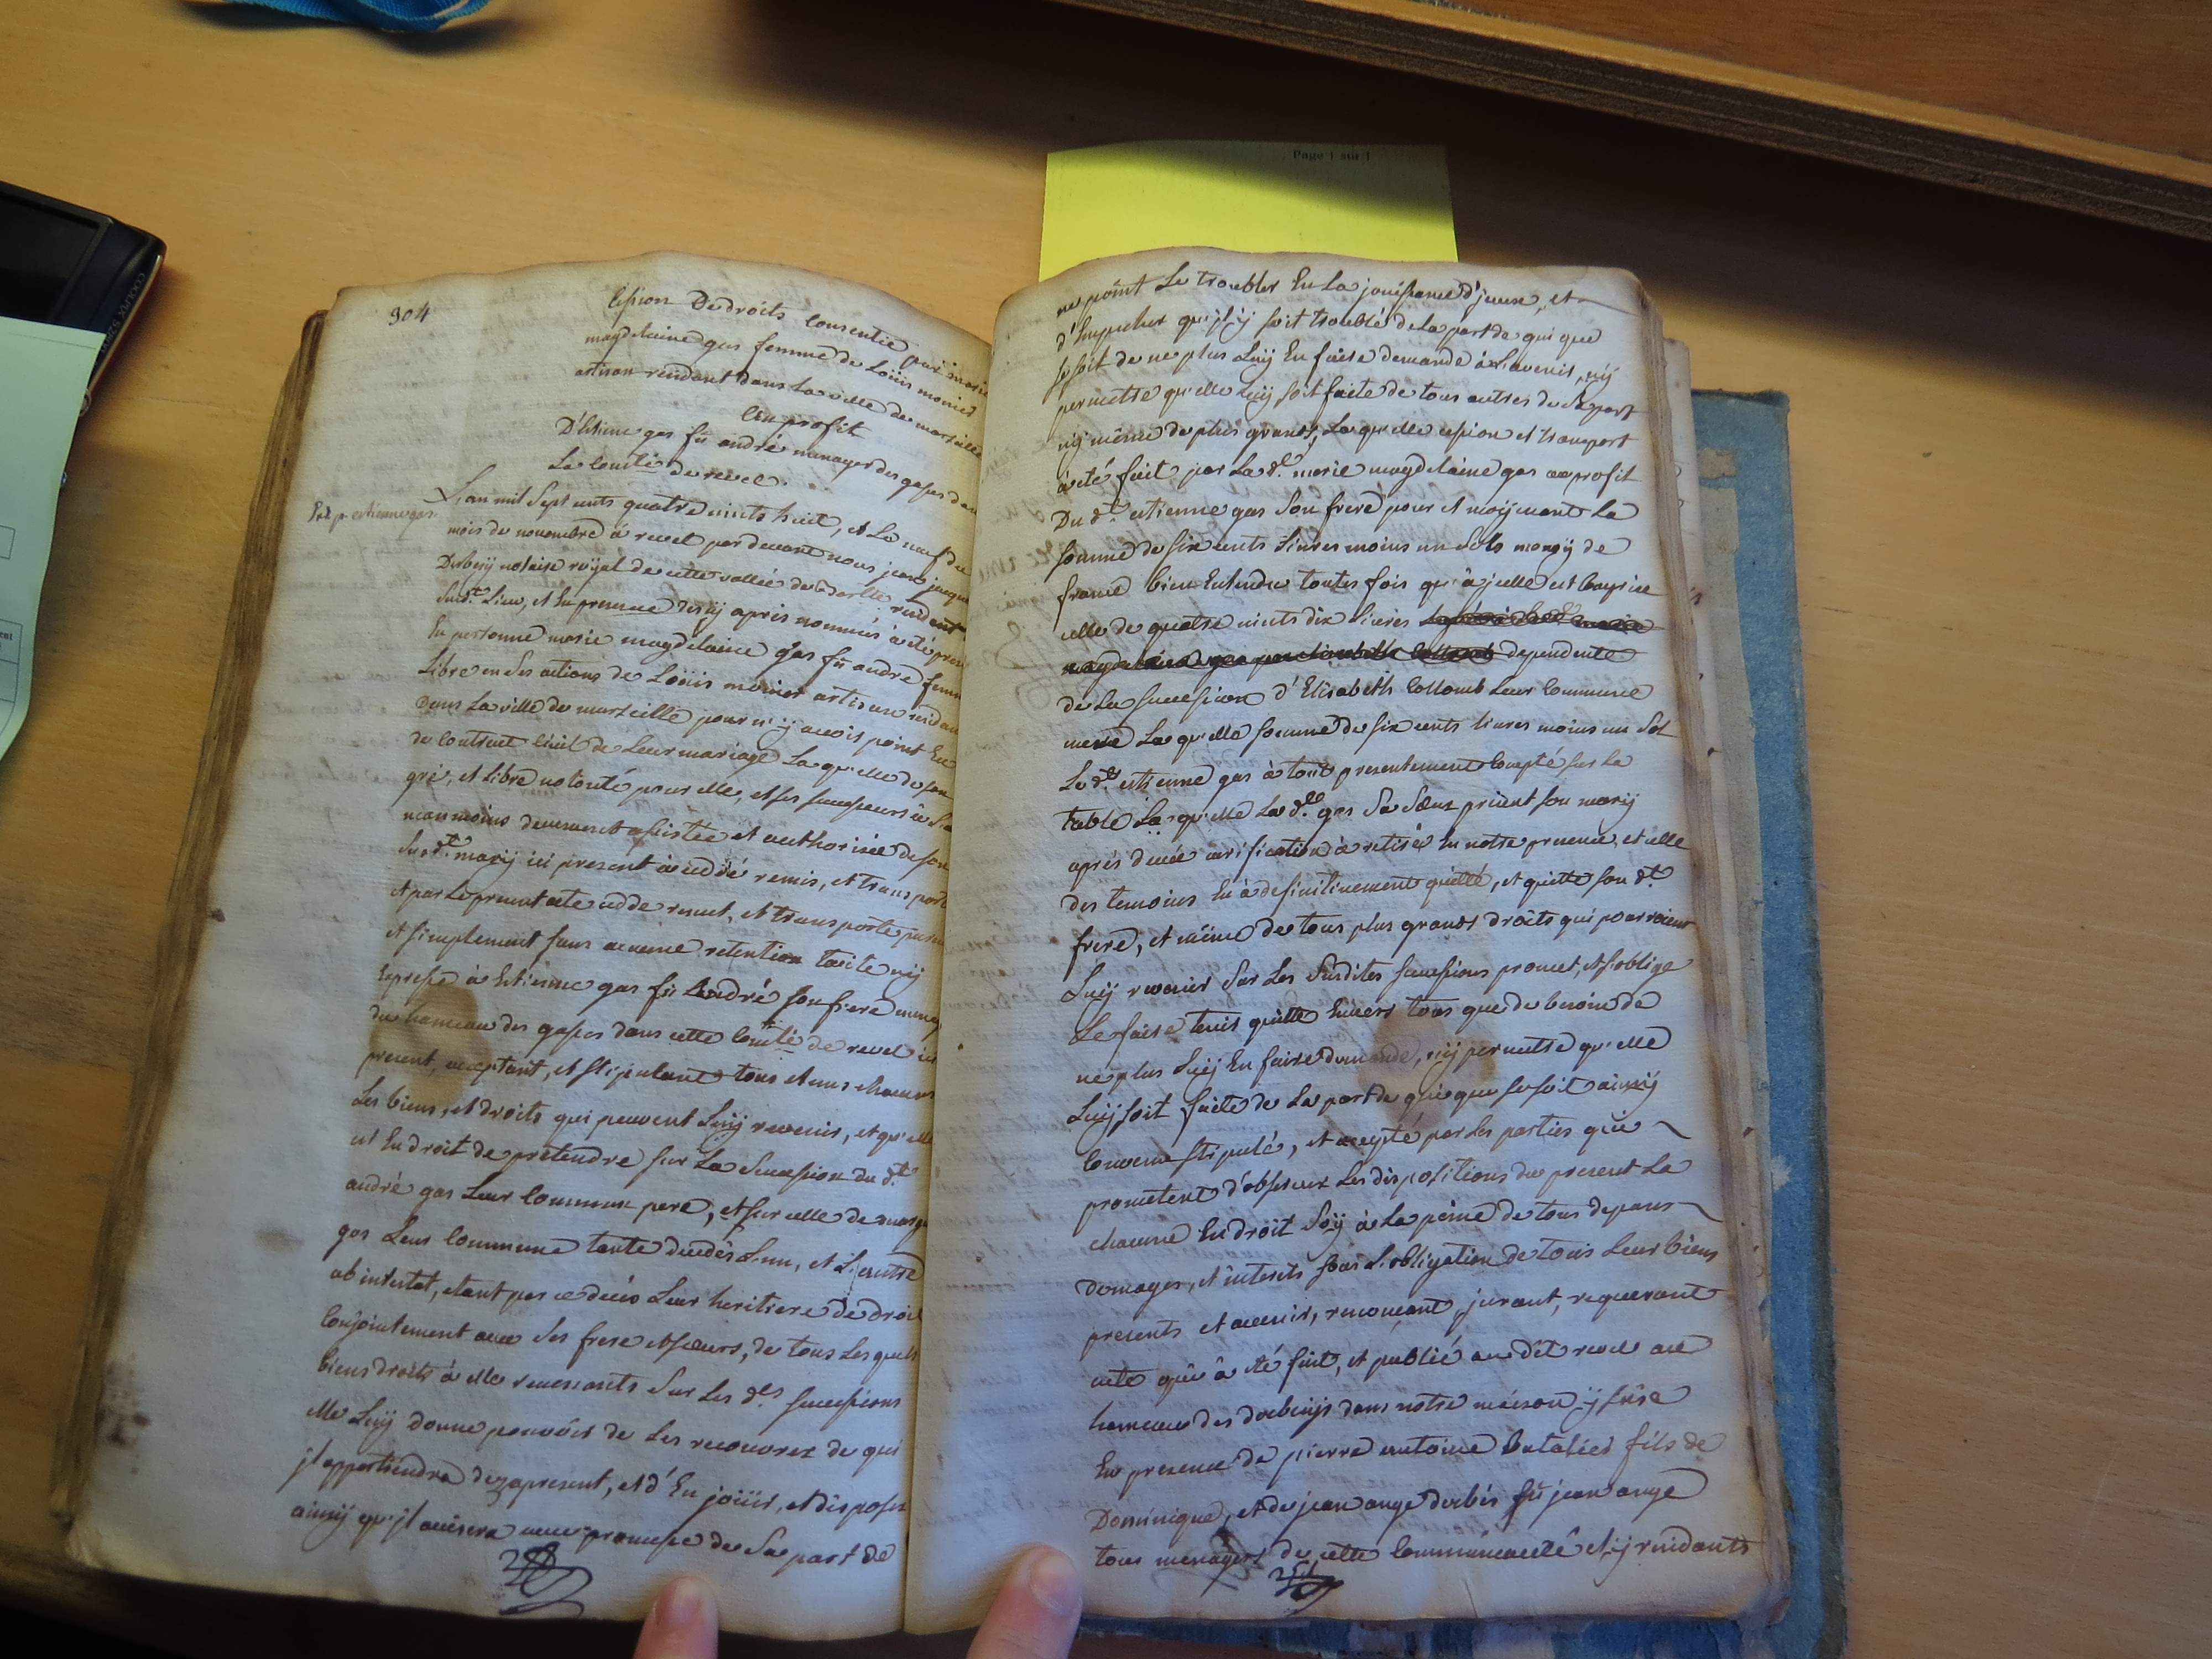 304
Cession De droits consentie par marie
magdelaine gas femme de Loüis monier
artisan residant dans La ville de marseille
au profit
D'Estiene gas fû andré menager des gasses dans
La Com.té de revel.
Exp. p. estienne gas.
L'an mil sept cents quatre vints huit, et Le neuf du
mois de novembre à revel par devant nous jean jaques
Derbezÿ notaire royal de cette vallée de residant
sud.t Lieu, et En presence des cy aprés nommés à eté present
En personne marie magdelaine gas fû andré femme
Libre en ses actions de Loüis monier artisan residant
Dans La ville de marseille pour n'ÿ avoir point Eu
de contract civil de Leur mariage La quelle de son
gré, et Libre volonté pour elle, et ses successeurs à
neanmoins deuement assistée et authorisée de son
sud.t marÿ ici present à cedé remis, et transporté
et par Le present acte cedde remet, et transporte purement
et simplement sans aucune retention tacite nÿ
Expresse à Estienne gas fû André son frere menager
du hameau des gasses dans cette Com.té de revel ici
present, acceptant, et stipulant tous et uns chacuns
Les biens, et droits qui peuvent Luÿ revenir, et qu'elle
est En droit de pretendre sur La succession du d.t
andré gas Leur Commun pere, et sur celle de
gas Leur Commune tante decedés L'un, et L'autre
ab intestat, etant par ce decés Leur heritiere de droit
Conjointement avec ses frere et sœurs, de tous Les quels
biens droits à elle revenants sur Les d.es successions
elle Luÿ donne pouvoir de Les recouvrer de qui
jl appartiendra dez apresent, et d'En joüir, et disposer
ainsÿ qu'jl avisera avec promesse de Sa part de
ne point Le troubler En La jouissance d'jceux, et
d'Empecher qu'jl ÿ soit troublé de La part de qui que
se soit de ne plus Luÿ En faire demande à L'avenir, nÿ
permettre qu'elle Luÿ soit faite de tous autres de Sa part
nÿ même de plus grands, La quelle cession et transport
à eté fait par La d.e marie magdelaine gas au profit
Du d.t estienne gas Son frere pour et moÿenant La
somme de six cents Livres moins un Sols monoÿ de
france bien Entendu toutes fois qu'à jcelle est Comprise
celle de quatre vints dix Livres
dependente
de La succession d'Elisabeth Collomb Leur Commune
mere La quelle somme de six cents Livres moins un Sol
Le d.t estienne gas à tout presentement Compté sur La
table La quelle La d.e gas Sa Sœur present son marÿ
aprés deuée verification à retirée En notre presence, et celle
des temoins En à definitivement quitté, et quitte son d.t
frere, et même de tous plus grands droits qui pourroient
Luÿ revenir sur Les Susdites successions promet, et s'oblige
Le faire tenir quitte Envers tous que de besoin de
ne plus Luÿ En faire demande, nÿ permettre qu'elle
Luÿ soit faite de La part de qui que se soit ainsÿ
Convenu stipulé, et accepté par Les parties qui
prometent d'observer Les dispositions du present La
chacune En droit Soÿ à La peine de tous depans
Domages, et interets sous L'obligation de tous Leur biens
presents et avenir, renonçant, jurant, requerant
acte qui à eté fait, et publié au dit revel au
hameau des derbezÿs dans notre maison ÿ sise
En presence de pierre antoine fils de
Dominique, et de jean ange derbés fû jean ange
tous menagers de cette Communeauté et ÿ residants